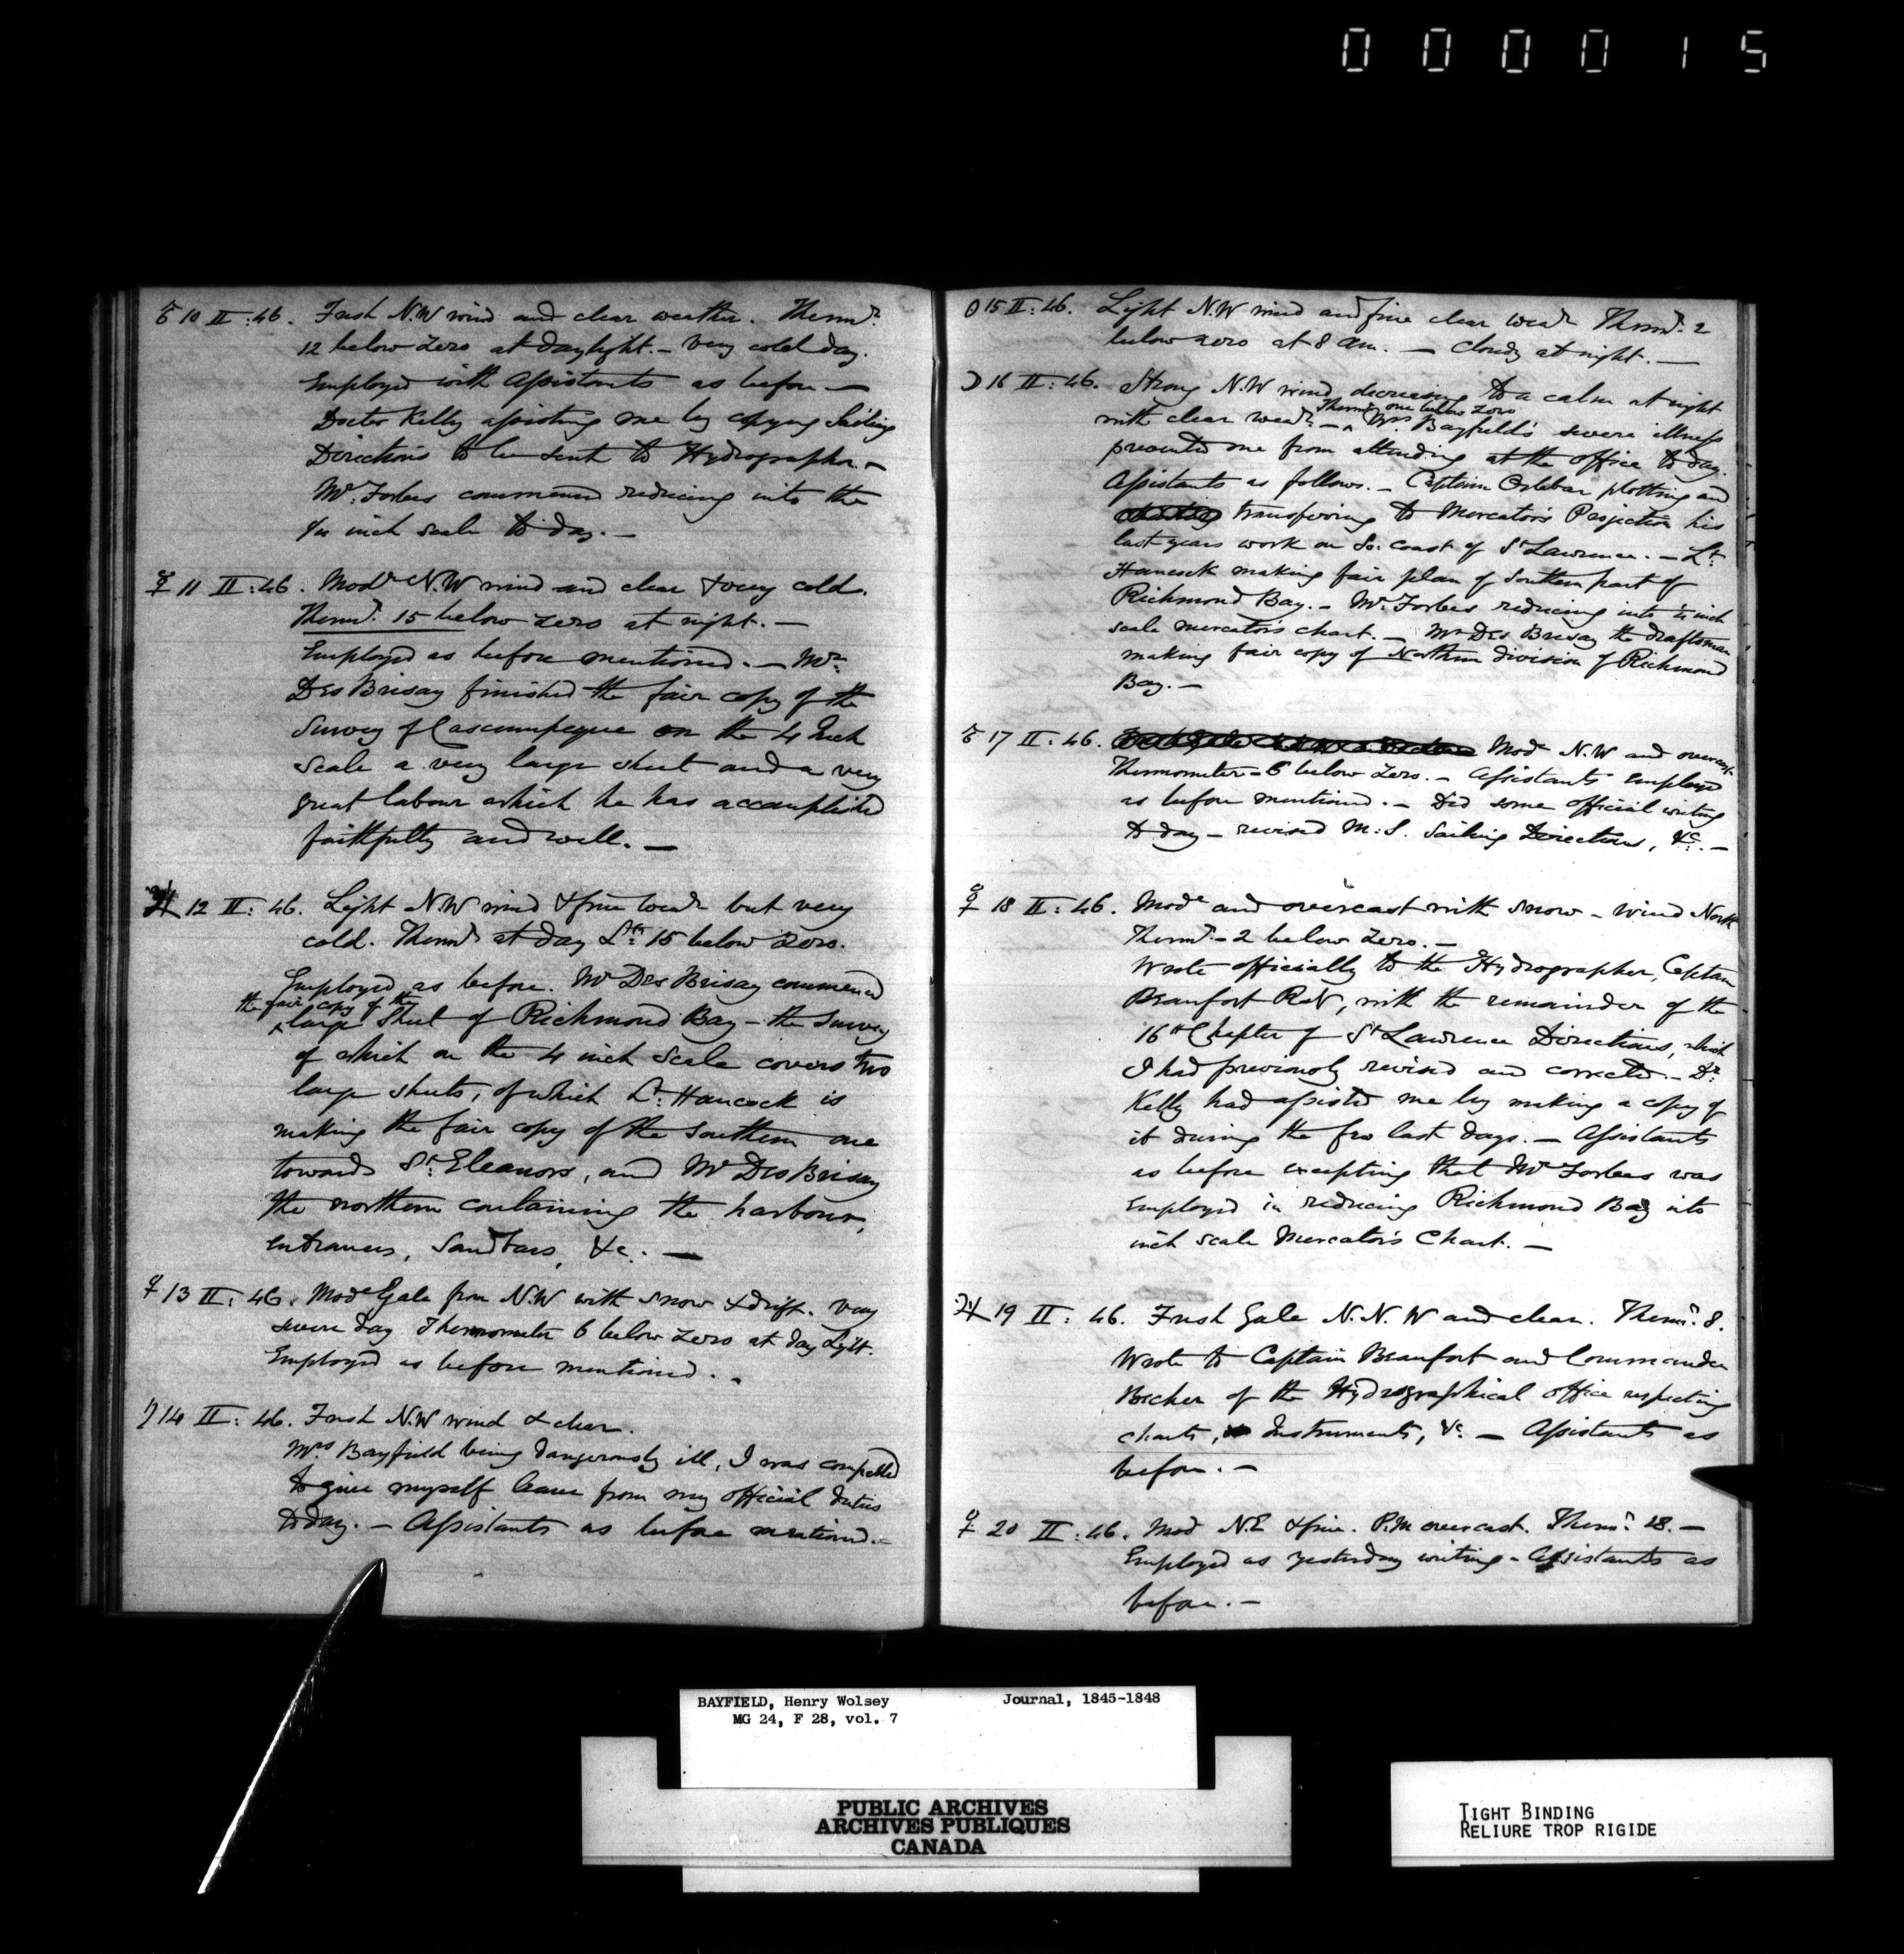 000015
♂ 10 II : 46. Fresh N.W wind and clear weather. Thermr.
12 below Zero at daylight. – Very cold day.
Employed with Assistants as before —
Doctor Kelly assisting me by copying Sailing
Directions to be sent to Hydrographer. –
Mr. Forbes commenced reducing into the
inch scale to day. –
☿ 11 II : 46. Modr N.W wind and clear & very cold.
Thermr. 15 below zero at night. —
Employed as before mentioned. — Mr.
Des Brisay finished the fair copy of the
Survey of Cascumpeque on the 4 Inch
Scale a very large sheet and a very
great labour which he has accomplished
faithfully and well. —
♃ 12 II : 46. Light N.W wind & fine wear but very
cold. Thermr at day Lt. 15 below Zero.
Employed as before. Mr Des Brisay commenced
the fair copy of the
^ large Sheet of Richmond Bay – the Survey
of which on the 4 inch Scale covers two
large sheets, of which Lt. Hancock is
making the fair copy of the Southern one
towards St. Eleanors, and Mr Des Brisay
the northern containing the harbour,
entrances, Sandbars, &c. —
♀ 13 II : 46. Mode Gale from N.W with snow & drift. Very
severe day Thermometer 6 below Zero at day Light.
Employed as before mentioned. .
♄ 14 II : 46. Fresh N.W wind & clear.
Mrs Bayfield being dangerously ill, I was compelled
to give myself leave from my official duties
to day. – Assistants as before mentioned. –
☉ 15 II : 46. Light N.W wind and fine clear wear Thermr. 2
below zero at 8 am. — Cloudy at night. —
☽ 16 II : 46. Strong N.W wind decreasing to a calm at night
Thermr one below zero
with clear wear. – ^ Mrs Bayfield's severe illness
prevented me from attending at the office to day.
Assistants as follows. – Captain Orlebar plotting and
transferring to Mercator's Projection his
last years work on So. coast of St Lawrence. – Lt.
Hancock making fair plan of Southern part of
Richmond Bay. – Mr. Forbes reducing into inch
scale mercator's chart. – Mr Des Brisay the draftsman
making fair copy of Northern division of Richmond
Bay. –
♂ 17 II : 46. Mod N.W and overcast
Thermometer – 6 below Zero. – Assistants employed
as before mentioned. – Did some official writing
to day – revised M:S. Sailing Directions, &c. –
☿ 18 II : 46. Mode and overcast with snow – wind North
Thermr. – 2 below Zero. –
Wrote officially to the Hydrographer, Captain
Beaufort RN, with the remainder of the
16th Chapter of St Lawrence Directions, which
I had previously revised and corrected. – Dr.
Kelly had assisted me by making a copy of
it during the few last days. – Assistants
as before excepting that Mr Forbes was
employed in reducing Richmond Bay into
inch scale Mercator's Chart. –
♃ 19 II : 46. Fresh Gale N.N.W and clear. Thermr. 8.
Wrote to Captain Beaufort and Commander
Becher of the Hydrographical office respecting
charts, Instruments, &c. — Assistants as
before. –
♀ 20 II : 46. Mod N.E & fine. P.M overcast. Thermr. 18. —
Employed as yesterday writing – Assistants as
before. –
BAYFIELD, Henry Wolsey Journal, 1845-1848
MG 24, F 28, vol. 7
PUBLIC ARCHIVES
ARCHIVES PUBLIQUES
CANADA
TIGHT BINDING
RELIURE TROP RIGIDE